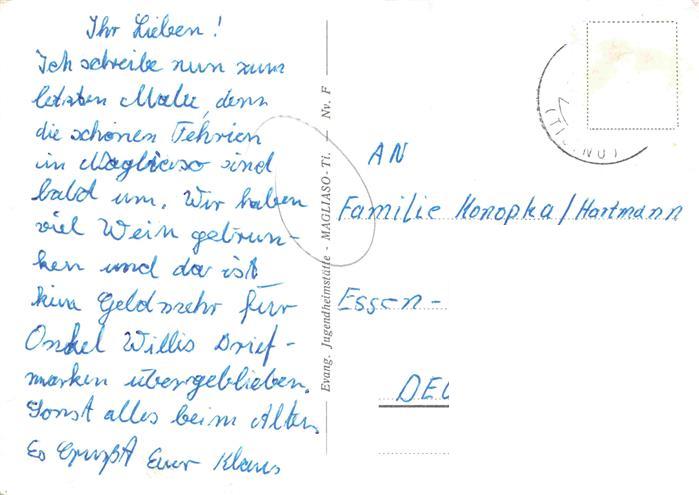 Ihr Lieben!
Ich schreibe nun zum
letzten Male, denn
die schönen Fehrien
in Magliaso sind
bald um. Wir haben
viel Wein getrun-
ken und da ist
kein Geld mehr für
Onkel Willis Brief-
marken übergeblieben.
Sonst alles beim Alten
Es Grüßt Euer Klaus
Evang. Jugendheimstätte - MAGLIASO-Ti. — Nr. F
AN
Familie Konopka/Hartmann
Essen-
DEU